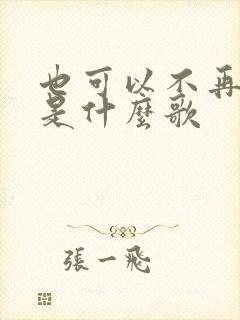 也可以不再
是什麼歌
張一飛